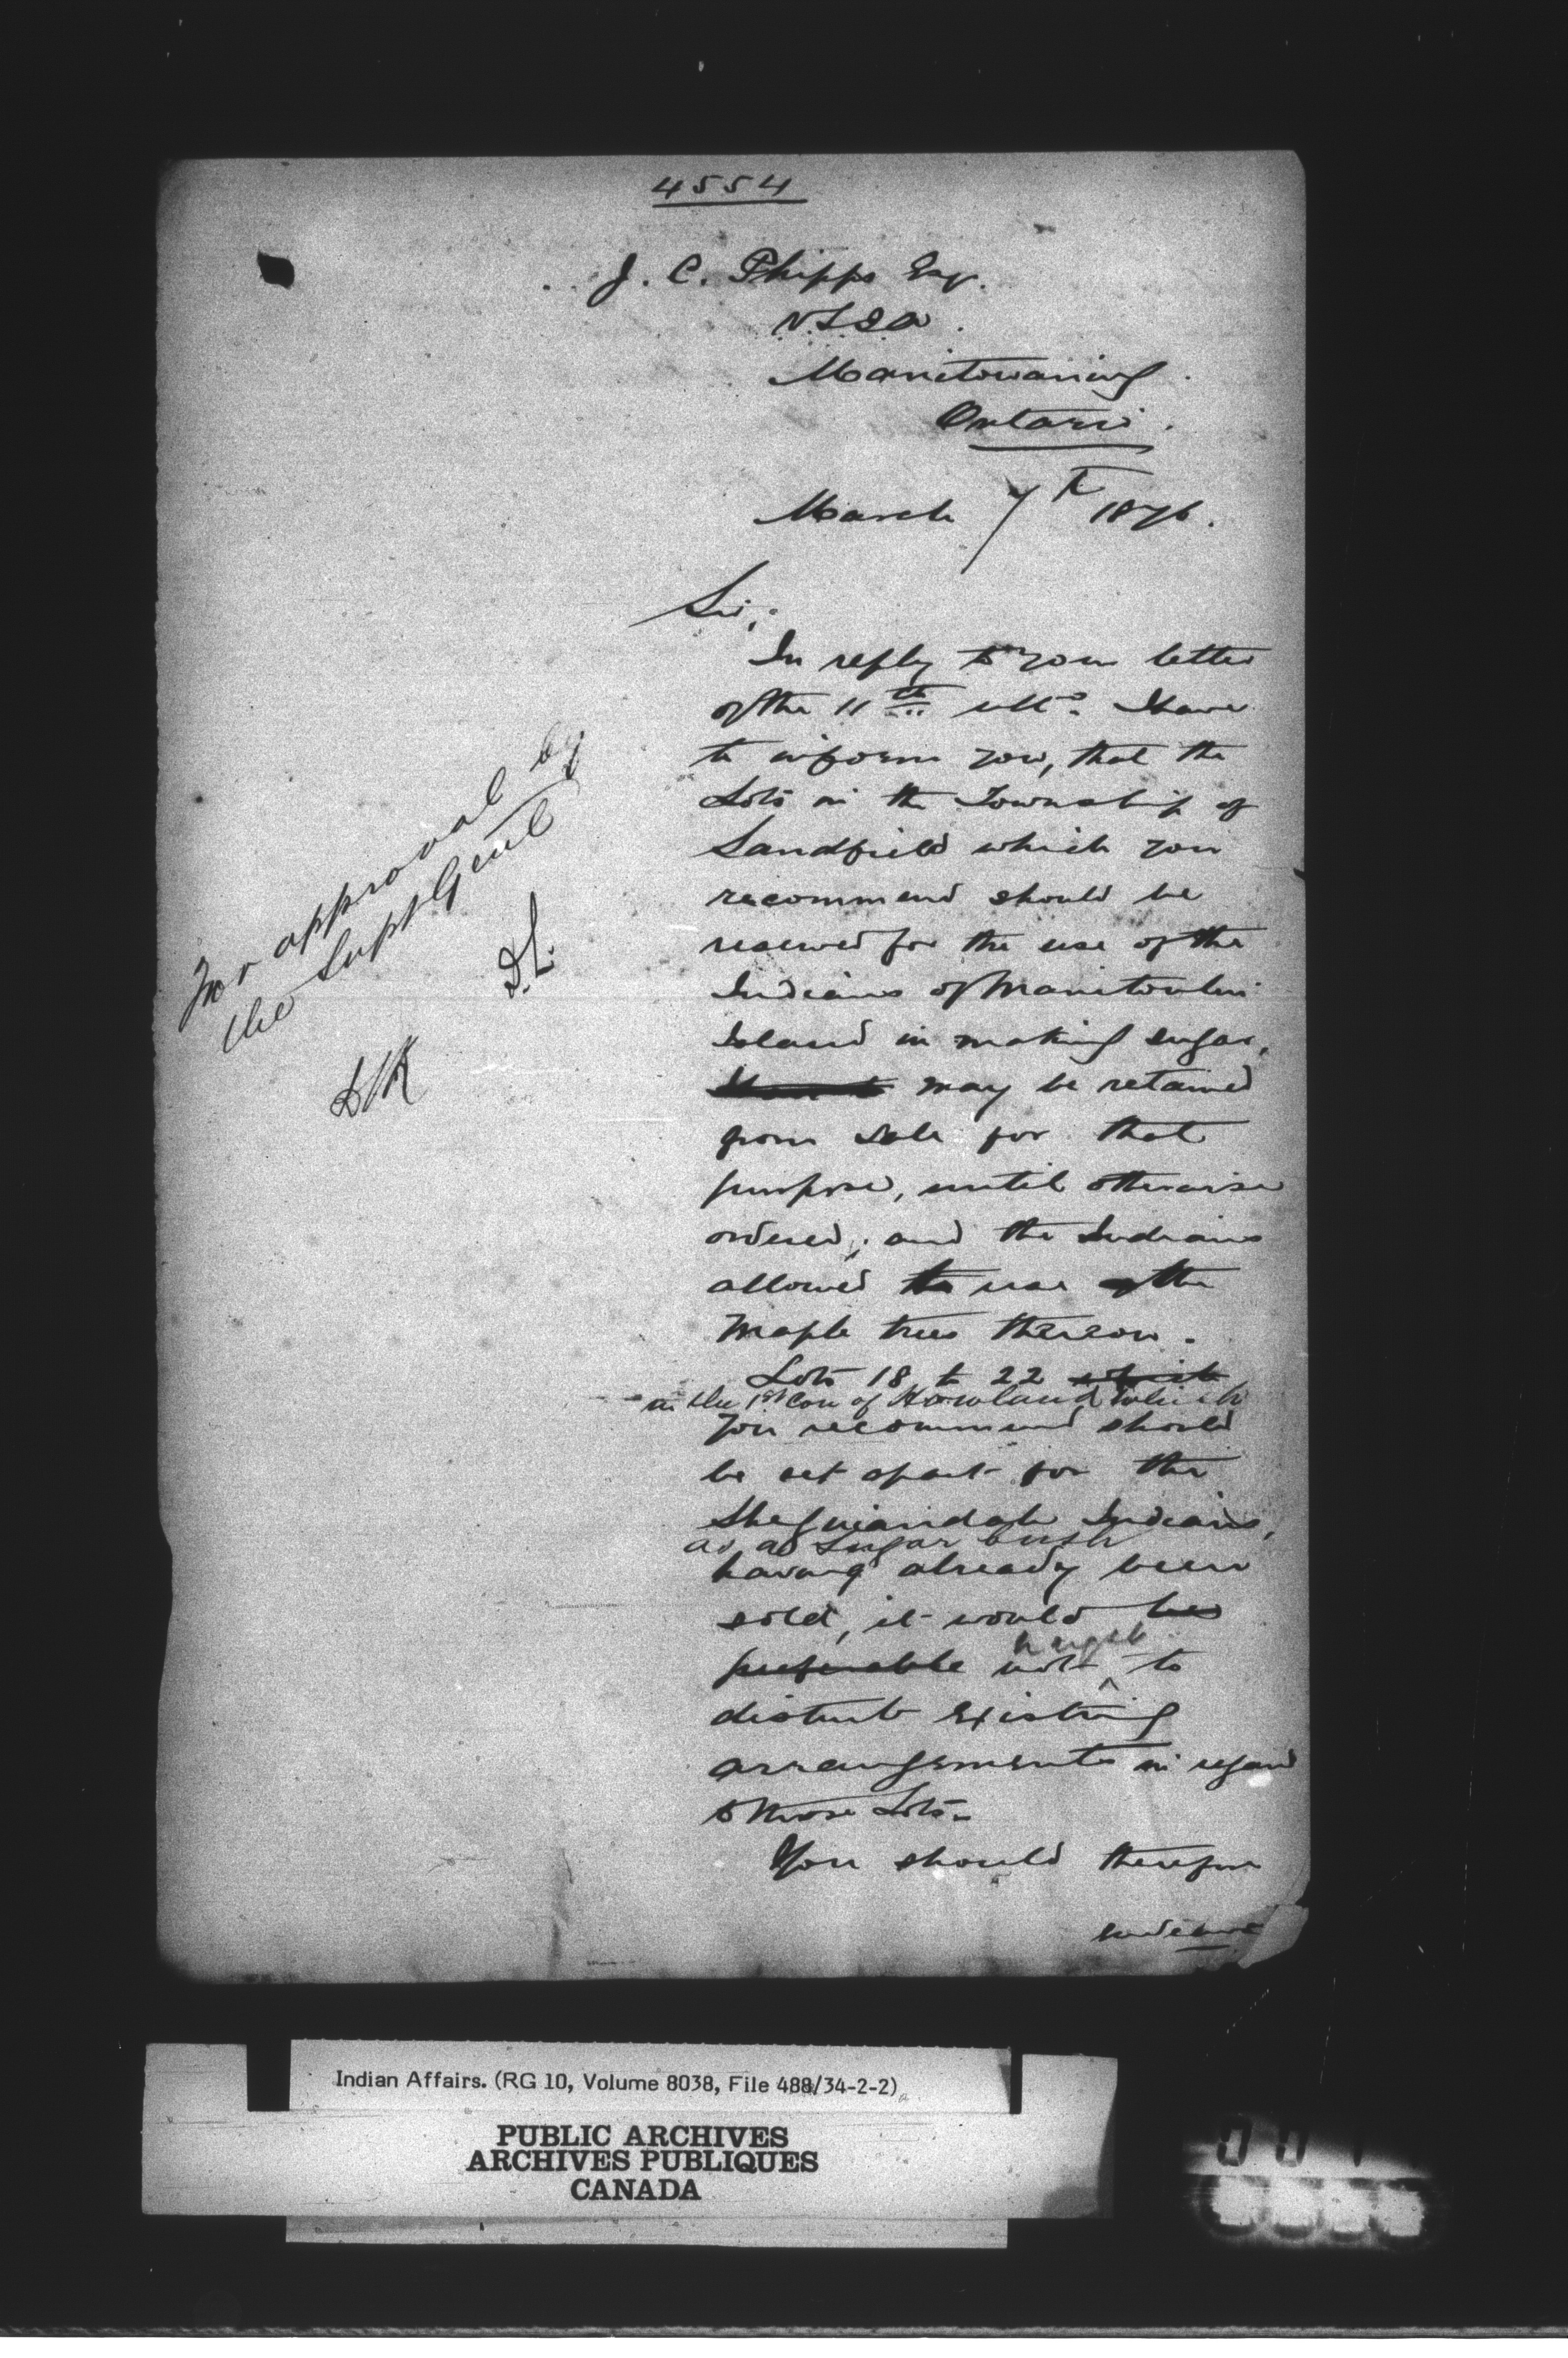 4554
J. C. Phipps Esqr.
V.S.I.A.
Manitowaning
Ontario.
March 7th 1876.
Sir,
In reply to your letter
of the 11th ulto. I have
to inform you, that the
Lots in the Township of
Sandfield which you
recommend should be
reserved for the use of the
Indians of Manitoulin
Island in making sugar,
may be retained
from sale for that
purpose, until otherwise
ordered; and the Indians
allowed to use the
Maple trees thereon.
Lots 18 to 22 which
in the 1st Con of Howland which
you recommend should
be set apart for the
Sheguiandah Indians,
as a sugar bush
having already been
sold, it would be
preferable not to
disturb existing
arrangements in regard
to those Lots.
You should therefore
endeavor
For approval by
the Supt Genl
D.L.
Indian Affairs. (RG 10, Volume 8038, File 488/34-2-2)
PUBLIC ARCHIVES
ARCHIVES PUBLIQUES
CANADA